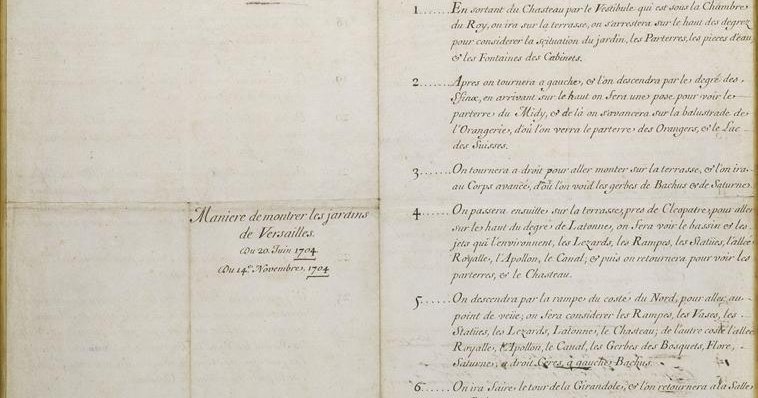 Maniere de montrer les jardins
de Versailles.
Du 20. Juin 1704
Du 14e. Novembre, 1704
1......En sortant du Chasteau par le Vestibule qui est sous la Chambre
du Roy, on ira sur la terrasse, on s'arrestera sur le haut des degrez
pour considerer la scituation du jardin, les Parterres, les pieces d'eau,
& les Fontaines des Cabinets.
2......Apres on tournera a gauche, & l'on descendra par le degré des
Sfinx, en arrivant sur le haut on Sera une pose pour voir le
parterre du Midy, & de là on s'avancera sur la balustrade de
l'Orangerie, d'où l'on verra le parterre des Orangers, & le Lac
des Suisses.
3......On tournera a droit pour aller monter sur la terrasse, & l'on ira
au Corps avancé, d'où l'on void les gerbes de Bachus & de Saturne
4......On passera ensuitte sur la terrasse, pres de Cleopatre, pour aller
sur le haut du degré de Latonne, on Sera voir le bassin & les
jets qui l'environnent, les Lezards, les Rampes, les Statües, l'allée
Royalle, l'Apollon, le Canal, & puis on retournera pour voir les
parterres, & le Chasteau.
5......On descendra par la rampe du costé du Nord, pour aller au
point de veüe; on Sera considerer les Rampes, les Vases, les
Statües, les Lezards, Latonne, le Chasteau; de l'autre costé l'allée
Royalle, l'Apollon, le Canal, les Gerbes des Bosquets, Flore,
Saturne, a droit Ceres, a gauche Bachus.
6......On ira Saire le tour de la Girandole, & l'on retournera a la Salle